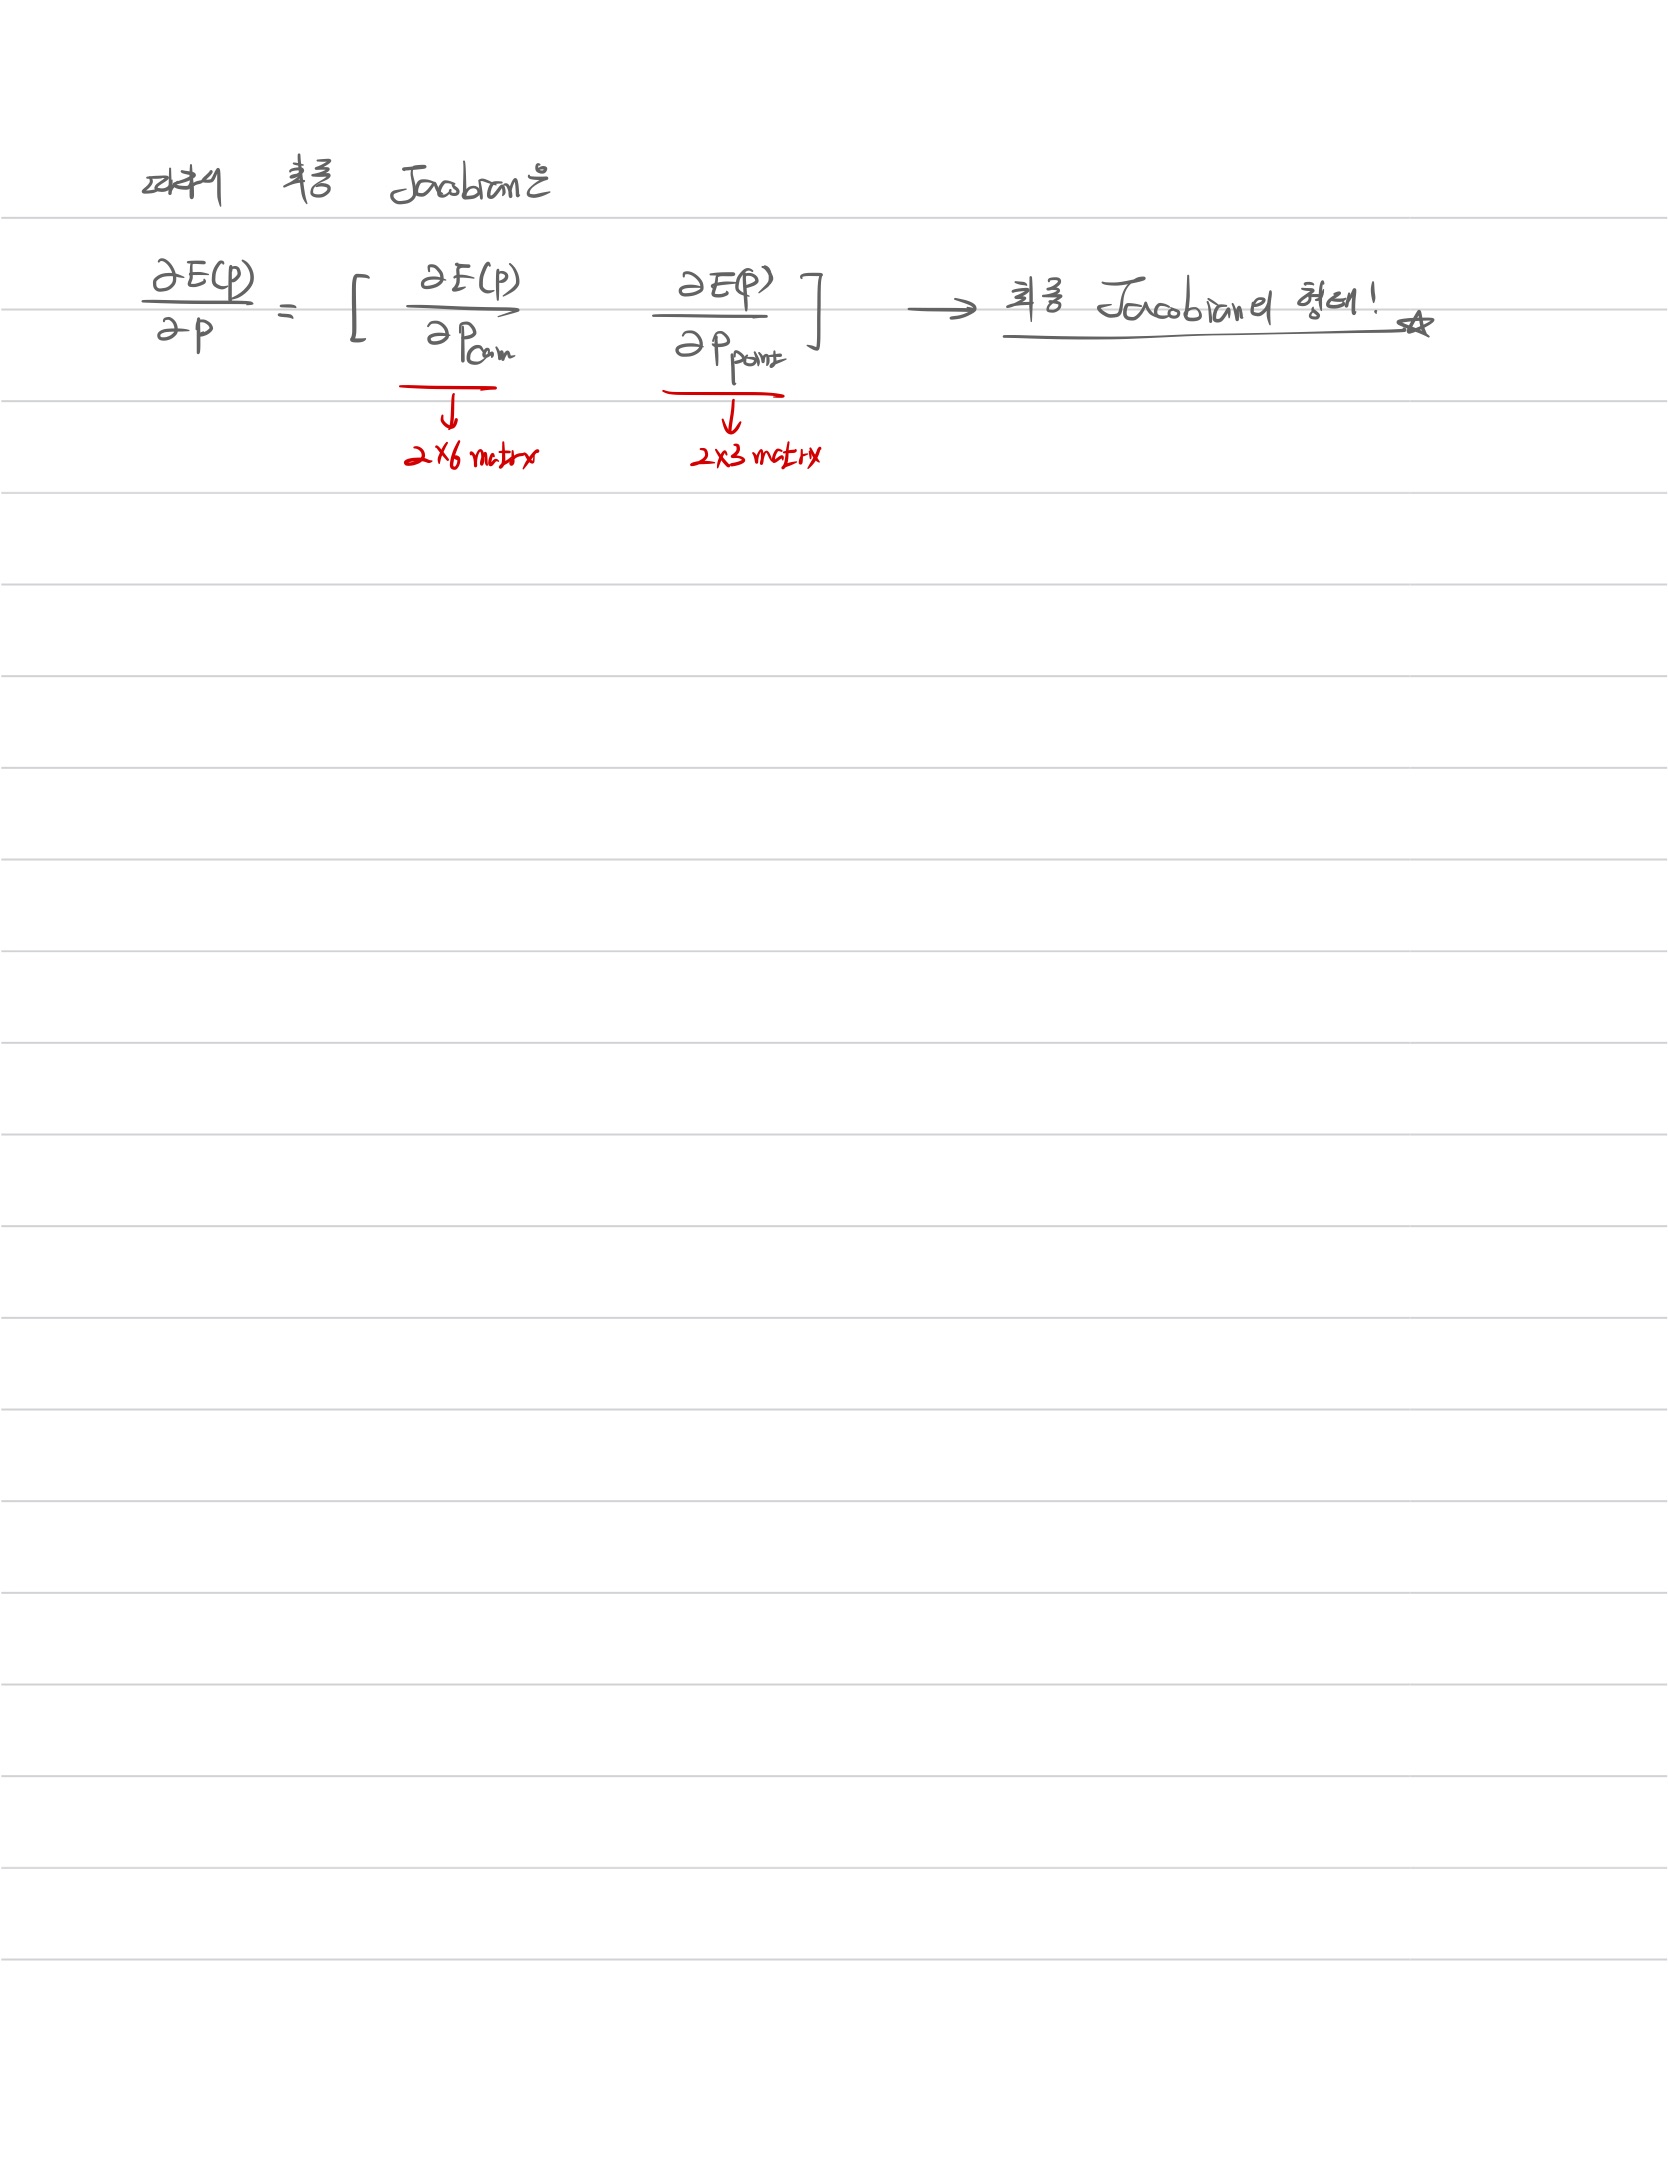 따라서 최종 Jacobian은
∂E(p)/∂p = [ ∂E(p)/∂P_cam ∂E(p)/∂P_point ] → 최종 Jacobian의 형태!☆
2×6 matrix 2×3 matrix